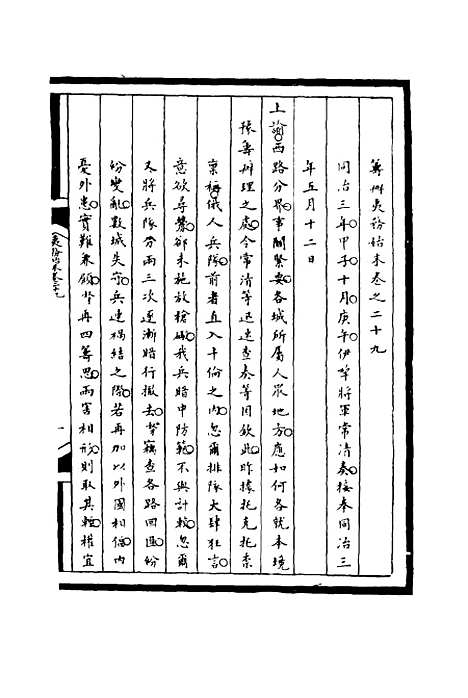 籌辦夷務始末卷之二十九
同治三年甲子十月庚午伊犂將軍常清奏接奉同治三
年五月十二日
上諭西路分界事關緊要各城所屬人眾地方應如何各就本境
據實辦理之處令常清等迅速查奏等因欽此昨據托克托索
稟稱俄人兵隊前者直入卡倫之內忽爾排隊大肆狂言
意欲尋釁卻未施放槍礮我兵暗中防範不與計較忽爾
又將兵隊分兩三次逐漸暗行撤去等竊查各路回匪紛
紛變亂數城失守兵連禍結之際若再加以外國相偪內
憂外患實難兼顧等再四籌思兩害相形則取其輕權宜
夷務始末卷二十九
一